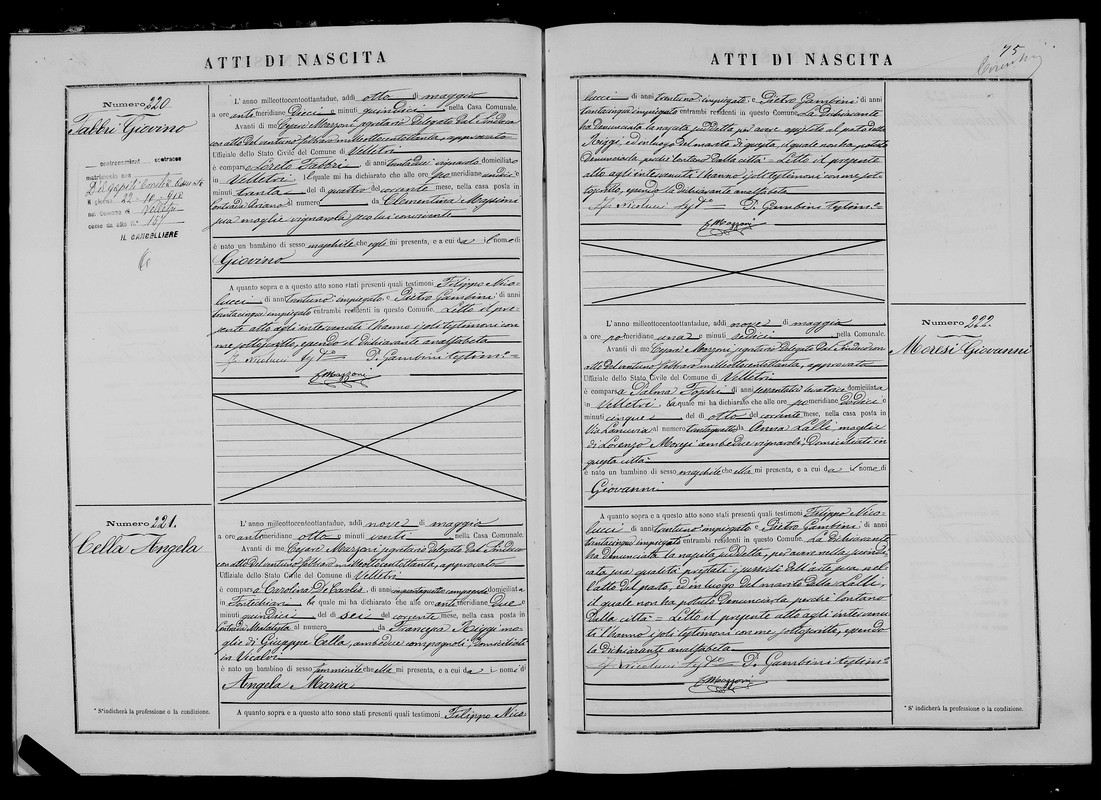 ATTI DI NASCITA
Numero 220
Fabbri Giovino
contrassegnat contrasse
matrimonio con
il giorno 22-10-910
nel Comune di Velletri
come da atto n° 157
IL CANCELLIERE
L'anno millecottocentoottantadue, addì otto di maggio
a ore antimeridiane dieci e minuti quindici, nella Casa Comunale.
Avanti di me Cesare Mazzoni segretario Delegato dal Sindaco
con atto del ventuno febbraro milleottocentottanta, approvato
Uffiziale dello Stato Civile del Comune di Velletri
è comparso Loreto Fabbri, di anni trentadue vignarolo domiciliato
in Velletri, il quale mi ha dichiarato che alle ore pomeridiane undici e
minuti trenta, del dì quattro del corrente mese, nella casa posta in
Contrada al numero da Clementina Massimi
sua moglie vignarola, seco lui convivente
è nato un bambino di sesso maschile che egli mi presenta, e a cui dà il nome di
Giovino
A quanto sopra e a questo atto sono stati presenti quali testimoni Filippo Nico-
lucci di anni trentuno impiegato e Pietro Gambini di anni
trentacinque impiegato entrambi residenti in questo Comune. Letto il pre-
sente atto agli intervenuti l'hanno i soli testimoni con
me sottoscritto, essendo il dichiarante analfabeta
F. Nicolucci P. Gambini testim.=
C Mazzoni
Numero 221.
Cella Angela
L'anno millecottocentoottantadue, addì nove di maggio
a ore antimeridiane otto e minuti venti, nella Casa Comunale.
Avanti di me Cesare Mazzoni segretario Delegato dal Sindaco
con atto del ventuno febbraro milleottocentottanta, approvato
Uffiziale dello Stato Civile del Comune di Velletri
è comparsa Carolina De Carlis, di anni cinquantaquattro campagnola domiciliata
in Fontechiari, la quale mi ha dichiarato che alle ore antimeridiane due e
minuti quindici, del dì sei del corrente mese, nella casa posta in
Contrada al numero da Francesca Rizzi mo-
glie di Giuseppe Cella, ambedue campagnoli, domiciliati
in Vicalvi
è nato un bambino di sesso femminile che ella mi presenta, e a cui dà i nomi di
Angela Maria
A quanto sopra e a questo atto sono stati presenti quali testimoni Filippo Nico-
* S'indicherà la professione o la condizione.
ATTI DI NASCITA
75
lucci di anni trentuno impiegato e Pietro Gambini di anni
trentacinque impiegato entrambi residenti in questo Comune. La dichiarante
ha denunciata la nascita suddetta per avere assistito al parto della
Rizzi, ed in luogo del marito di questa, il quale non ha potuto
denunciarla, perchè lontano dalla città = Letto il presente
atto agli intervenuti l'hanno i soli testimoni con me sot-
toscritto, essendo la dichiarante analfabeta
F. Nicolucci P. Gambini testim.=
C Mazzoni
Numero 222.
Moresi Giovanni
L'anno millecottocentoottantadue, addì nove di maggio
a ore pomeridiane una e minuti sedici, nella Casa Comunale.
Avanti di me Cesare Mazzoni segretario Delegato dal Sindaco con
atto del ventuno febbraro milleottocentottanta, approvato
Uffiziale dello Stato Civile del Comune di Velletri
è comparsa Palma Foschi, di anni sessantatre levatrice domiciliata
in Velletri, la quale mi ha dichiarato che alle ore pomeridiane dodici e
minuti cinque, del dì otto del corrente mese, nella casa posta in
Via Lanuvia al numero trentaquattro da Anna Lalli moglie
di Lorenzo Moresi ambedue vignaroli, domiciliati in
questa città
è nato un bambino di sesso maschile che ella mi presenta, e a cui dà il nome di
Giovanni
A quanto sopra e a questo atto sono stati presenti quali testimoni Filippo Nico-
lucci di anni trentuno impiegato e Pietro Gambini di anni
trentacinque impiegato entrambi residenti in questo Comune. La dichiarante
ha denunciata la nascita suddetta, per avere nella indi-
cata sua qualità prestati i sussidi dell'arte sua nel-
l'atto del parto, ed in luogo del marito della Lalli,
il quale non ha potuto denunciarla, perchè lontano
dalla città = Letto il presente atto agli intervenu-
ti l'hanno i soli testimoni con me, sottoscritto, essendo
la dichiarante analfabeta
F. Nicolucci P. Gambini testim.=
C Mazzoni
* S'indicherà la professione o la condizione.